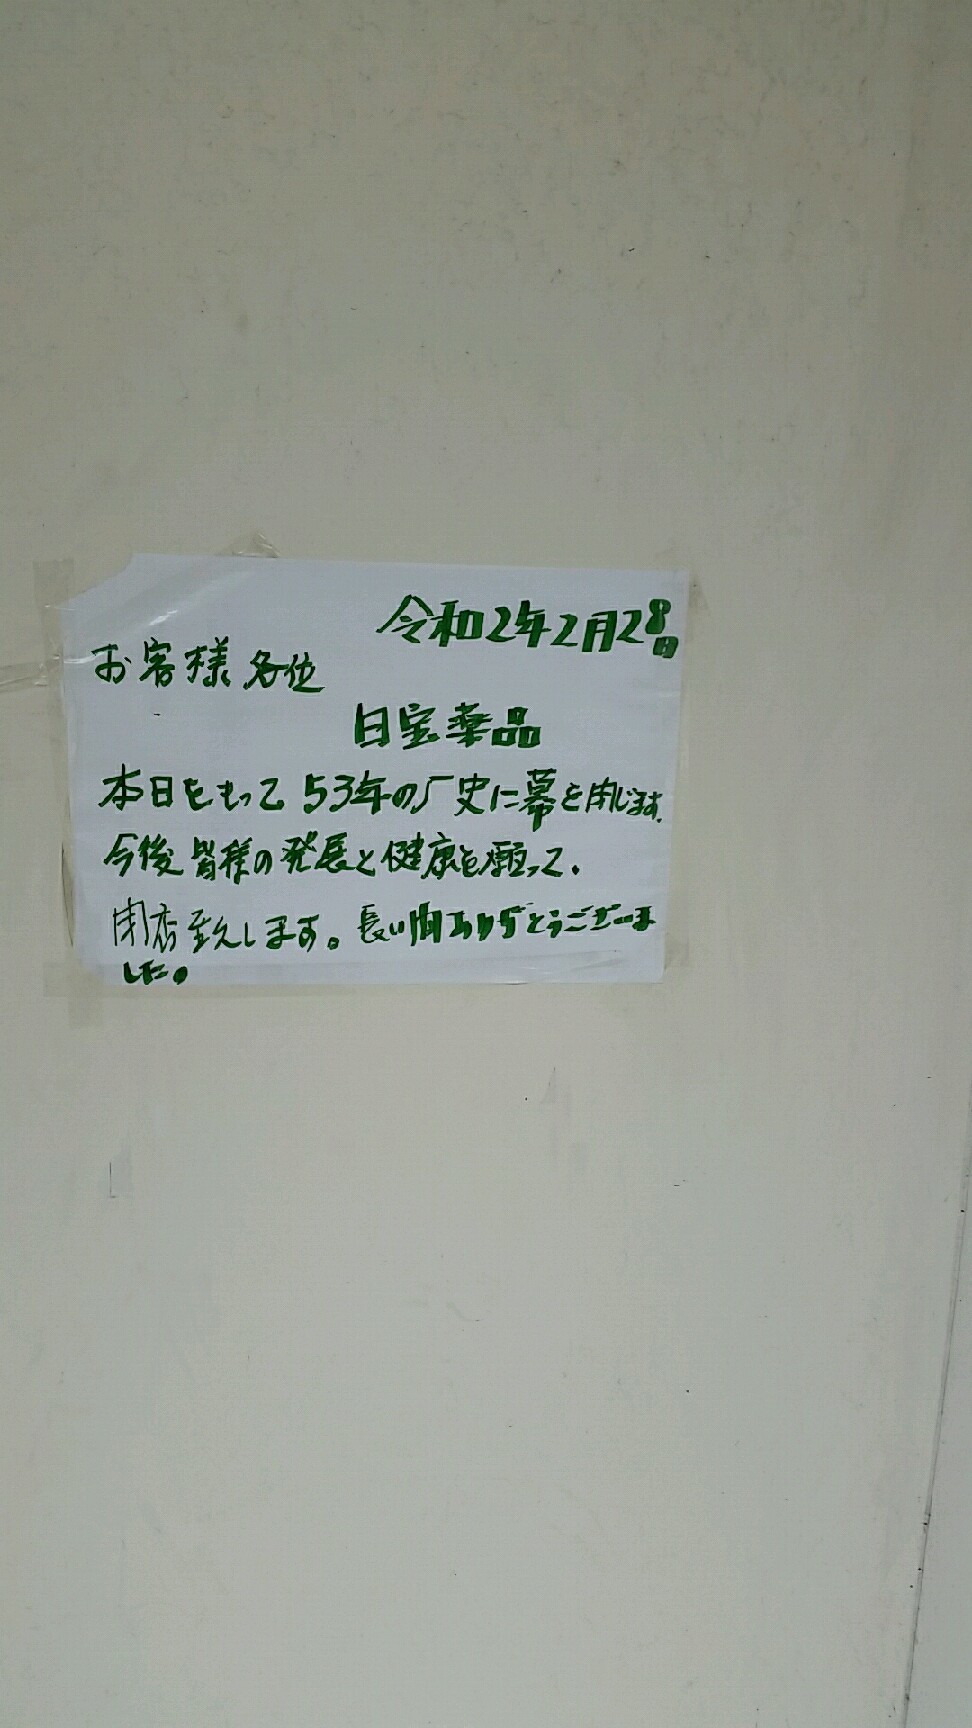 令和2年2月28日
お客様各位
日宝薬品
本日をもって53年の厂史に幕を閉じます。
今後皆様の発展と健康を願って、
閉店致します。長い間ありがとうございま
した。